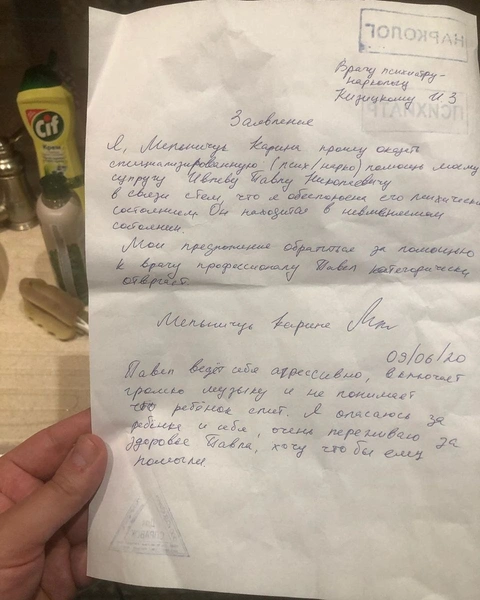 НАРКОЛОГ
Врачу психиатру-
наркологу
Кизецкому И.З
ПСИХИАТР
Заявление
Я, Мельничук Карина прошу оказать
специализированную (псих/нарко) помощь моему
супругу Ивлеву Павлу Николаевичу
в связи с тем, что я обеспокоена его психическим
состоянием. Он находится в невменяемом
состоянии.
Мои предложение обратиться за помощью
к врачу профессионалу Павел категорически
отвергает.
Мельничук Карина
09/06/20
Павел ведёт себя агрессивно, включает
громко музыку и не понимает
что ребёнок спит. Я опасаюсь за
ребёнка и себя, очень переживаю за
здоровье Павла, хочу что бы ему
помогли
Cif